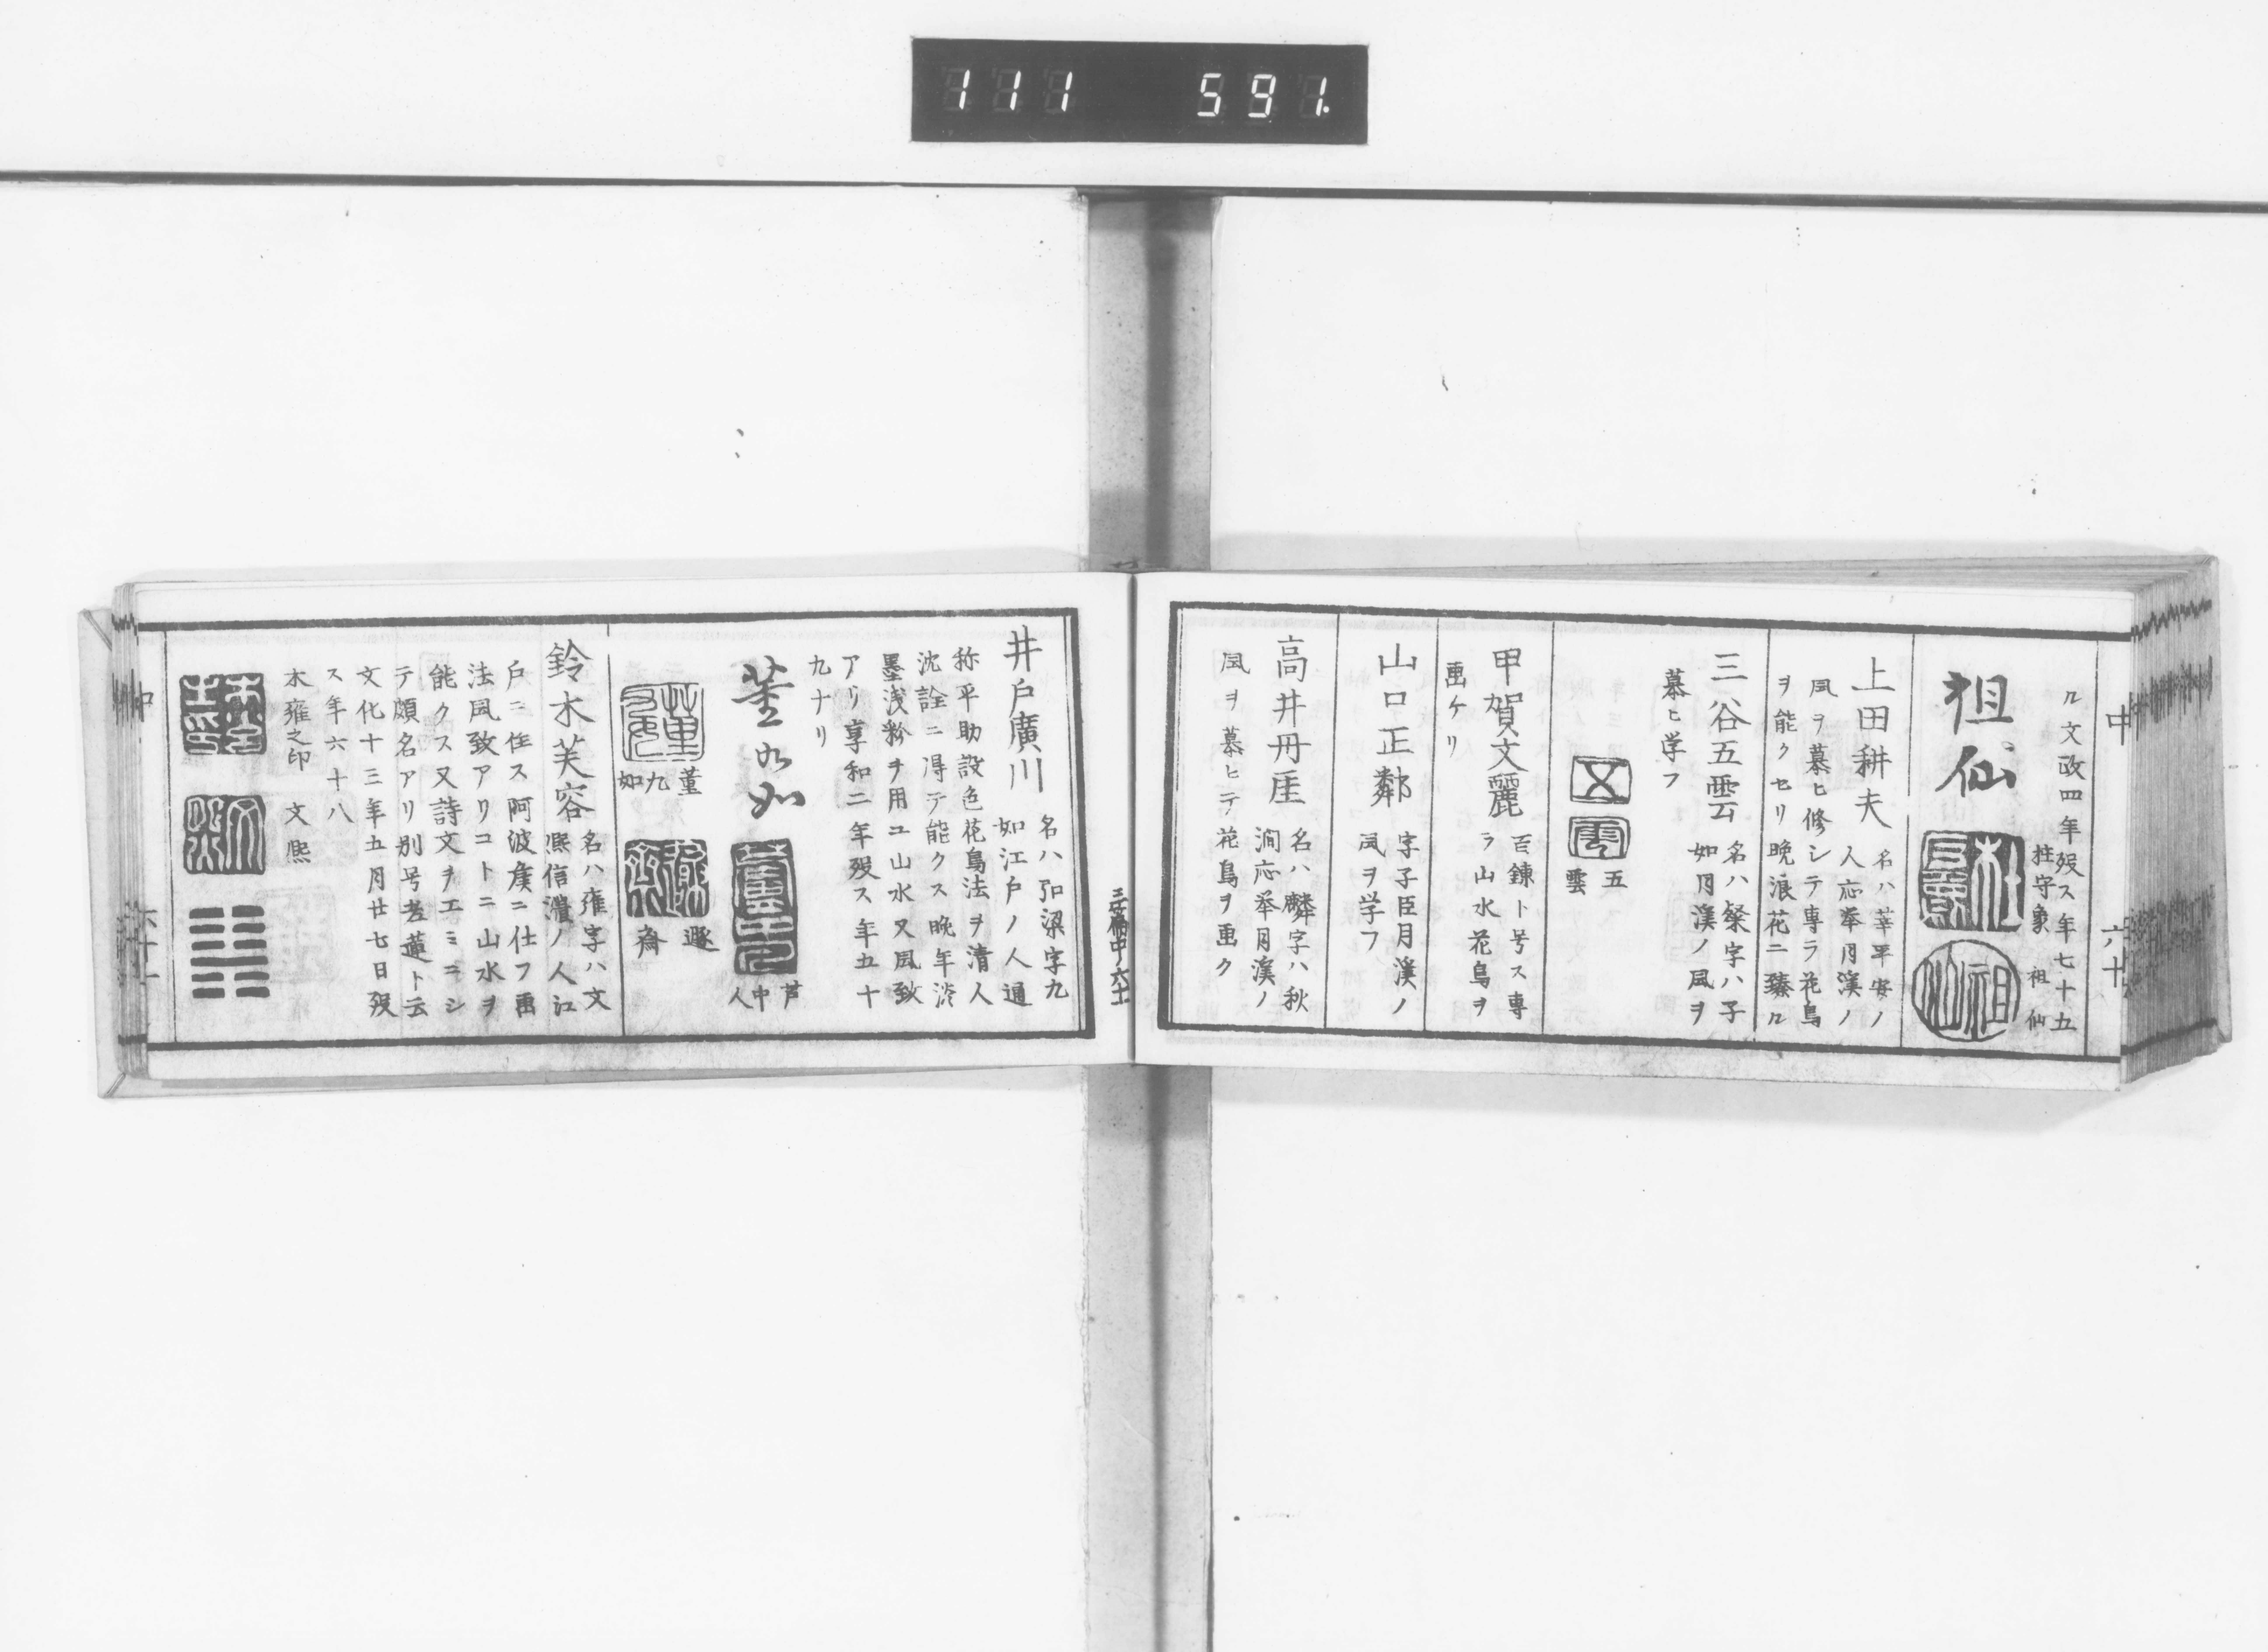 111 591.
中
六十
ル文政四年歿ス年七十五
祖仙
狙守象
祖仙
上田耕夫
名ハ華平安ノ
人応挙月渓ノ
風ヲ慕ヒ修シテ專ラ花鳥
ヲ能クセリ晩浪花ニ臻ル
三谷五雲
名ハ粲字ハ子
如月渓ノ風ヲ
慕ヒ学フ
五雲
甲賀文麗
百錬ト号ス專
ラ山水花鳥ヲ
画ケリ
山口正鄰
字子臣月渓ノ
風ヲ学フ
高井丹厓
名ハ麟字ハ秋
澗応挙月渓ノ
風ヲ慕ヒテ花鳥ヲ画ク
三編中ノ六十一
井戸廣川
名ハ弘梁字九
如江戸ノ人通
称平助設色花鳥法ヲ清人
沈詮ニ得テ能クス晩年淡
墨浅粉ヲ用ユ山水又風致
アリ享和二年歿ス年五十
九ナリ
董九如
芦中人
董九如
遯斎
鈴木芙容
名ハ雍字ハ文
熈信濃ノ人江
戸ニ住ス阿波矦ニ仕フ画
法風致アリコトニ山水ヲ
能クス又詩文ヲエミニシ
テ頗名アリ別号老蓮ト云
文化十三年五月廿七日歿
ス年六十八
木雍之印
文熈
中
六十一